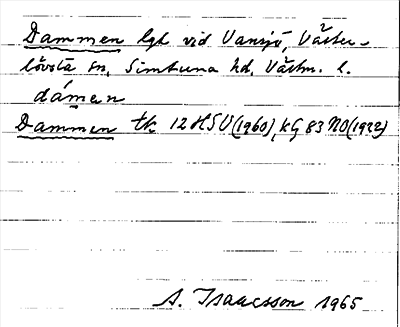 Dammen lgh vid Vansjö, Väster-
lövsta sn, Simtuna hd, Västm. l.
dámen
Dammen tk 12 H SV (1960), kG 83 NO (1922)
A. Isaacsson 1965